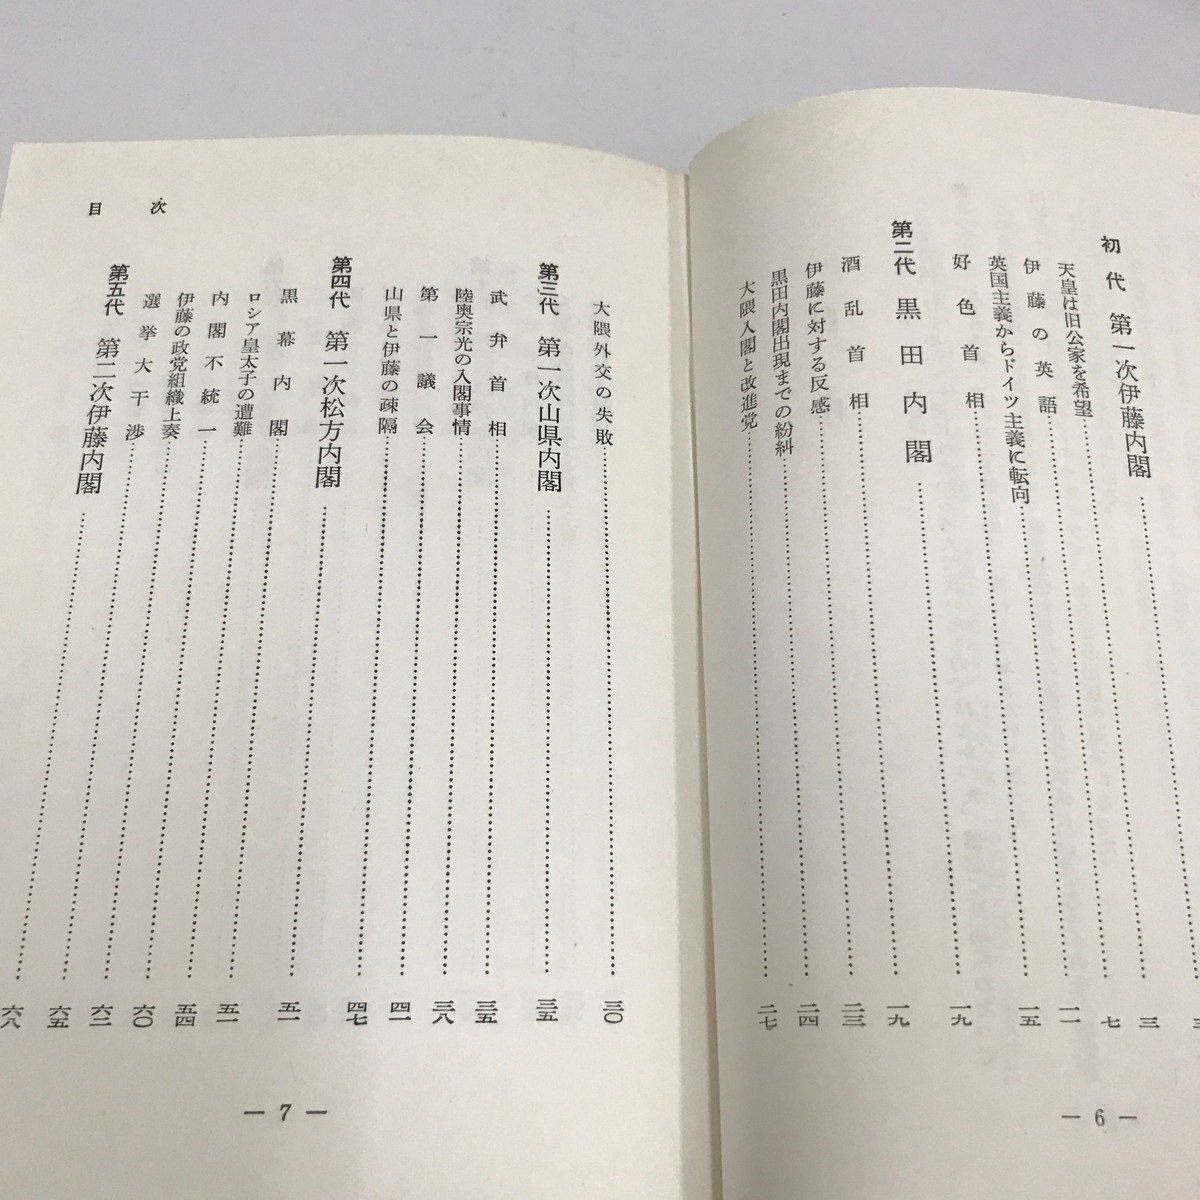 初代 第一次伊藤内閣……三
天皇は旧公家を希望……三
伊藤の英語……七
英国主義からドイツ主義に転向……一一
好色首相……一五
第二代 黒田内閣……一九
酒乱首相……一九
伊藤に対する反感……二三
黒田内閣出現までの紛糾……二四
大隈入閣と改進党……二七
— 6 —
目次
大隈外交の失敗……三〇
第三代 第一次山県内閣……三五
武弁首相……三五
陸奥宗光の入閣事情……三八
第一議会……四一
山県と伊藤の疎隔……四七
第四代 第一次松方内閣……五一
黒幕内閣……五一
ロシア皇太子の遭難……五四
内閣不統一……六〇
伊藤の政党組織上奏……六二
選挙大干渉……六五
第五代 第二次伊藤内閣……六八
— 7 —